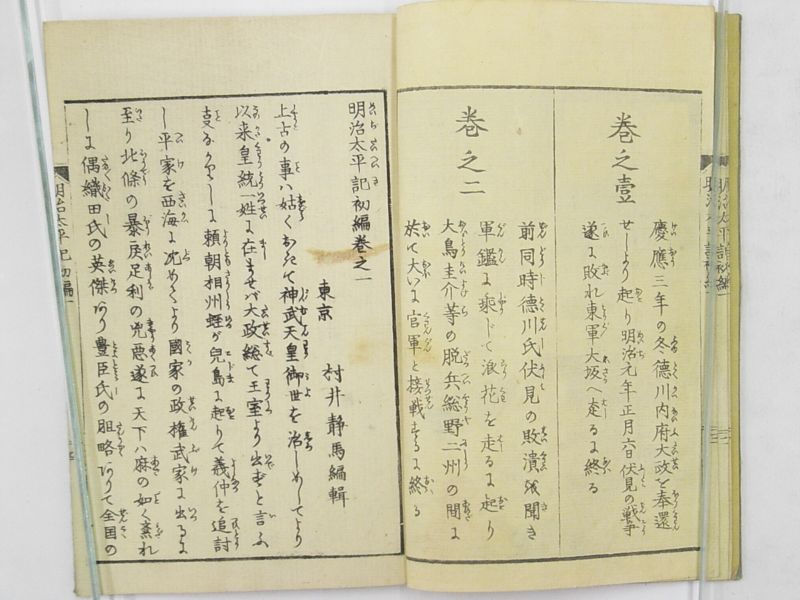 巻之壹
慶應三年の冬德川内府大政を奉還
せしより起り明治元年正月六日伏見の戦争
遂に敗れ東軍大坂へ走るに終る
巻之二
前同時德川氏伏見の敗潰を聞き
軍艦に乘じて浪花を走るに起り
大鳥圭介等の脱兵総野二州の間に
於て大いに官軍と接戦するに終る
明治太平記初編巻之一
東京 村井静馬編輯
上古の事ハ姑くおいて神武天皇御世を治しめしてより
以来皇統一姓に在ませバ大政総て王室より出ずと言ふ
頼朝相州蛭が児島に起りて義仲を追討
し平家を西海に沈めてより國家の政権武家に出るに
至り北條の暴戻足利の兇悪遂に天下ハ麻の如く紊れ
しに偶織田氏の英傑あり豊臣氏の胆略ありて全国の
明治太平記初編